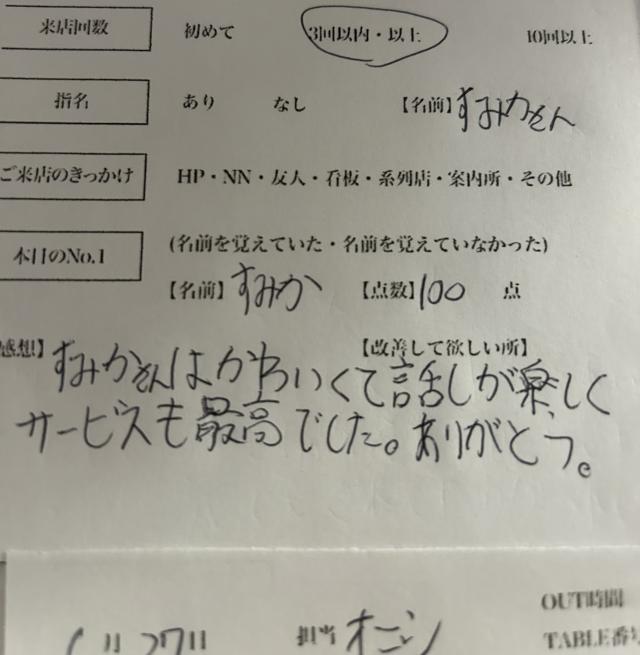 来店回数 初めて 3回以内・以上 10回以上
指名 あり なし 【名前】すみかさん
ご来店のきっかけ HP・NN・友人・看板・系列店・案内所・その他
本日のNo.1 (名前を覚えていた・名前を覚えていなかった)
【名前】すみか 【点数】100 点
感想】 【改善して欲しい所】
すみかさんはかわいくて話しが楽しく
サービスも最高でした。ありがとう。
OUT時間
月27日 担当 オニシ TABLE番